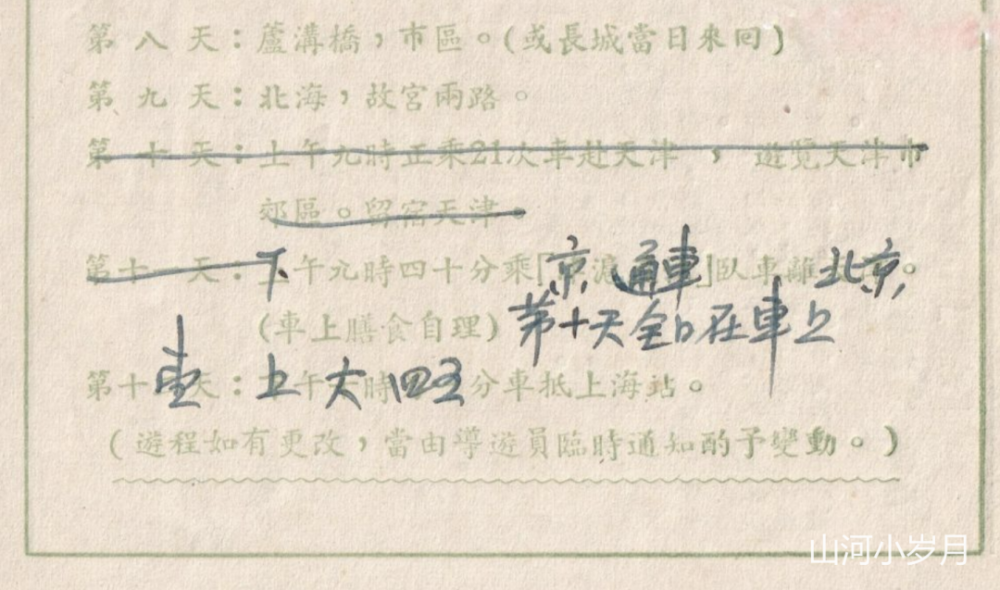 第八天：蘆溝橋，市區。(或長城當日來回)
第九天：北海，故宮兩路。
第十天：上午九時正乘21次車赴天津，遊覽天津市
郊區。留宿天津。
第十一天：下午九時四十分乘「京滬通車」臥車離北京。
(車上膳食自理) 第十天全日在車上
第十壹天：上午六時四五分車抵上海站。
(遊程如有更改，當由導遊員臨時通知酌予變動。)
山河小岁月